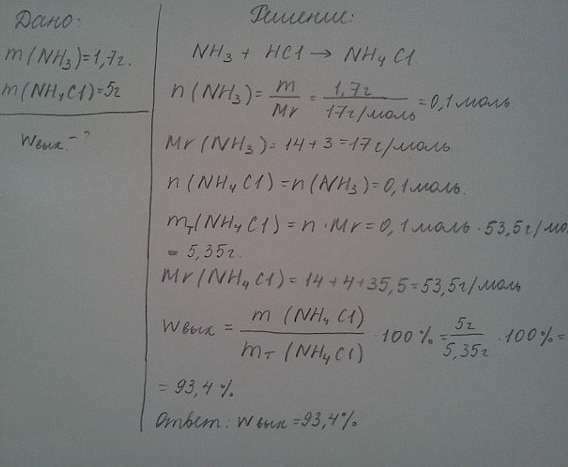 Дано:
m(NH₃)=1,7г.
m(NH₄Cl)=5г
Wвых.-?
Решение:
NH₃ + HCl → NH₄Cl
n(NH₃)= m/Mr = 1,7г/17г/моль =0,1моль
Mr(NH₃)=14+3=17г/моль
n(NH₄Cl)=n(NH₃)=0,1моль.
mт(NH₄Cl)=n·Mr=0,1моль·53,5г/мо
=5,35г.
Mr(NH₄Cl)=14+4+35,5=53,5г/моль
Wвых = m (NH₄Cl)/mт (NH₄Cl) ·100%= 5г/5,35г ·100%=
=93,4%
Ответ: Wвых=93,4%